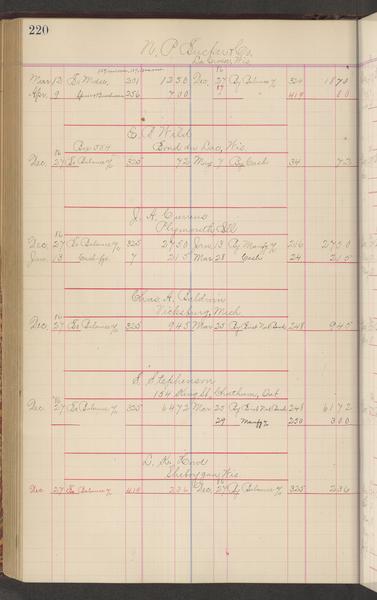 220
N. P. & Co.
La Crosse, Wis
Mar 12 To Mdse 201 1250 Dec 27 By Balance 324 1870
Apr. 9 256 700 419 80
E. S. Wild
Box 554 Fond du Lac, Wis.
Dec. 27 To Balance 325 72 May 7 By Cash 34 72
J. A. Currens
Plymouth Ill
Dec 27 To Balance 325 2750 Jan 13 By Manfg 216 2750
Jan 13 Cash 7 215 Mar 28 Cash 24 215
Chas A. Baldwin
Vicksburg, Mich
Dec. 27 To Balance 325 945 Mar 25 By First Nat Bank 248 945
S. Stephenson
154 King St, Chatham, Ont
Dec 27 To Balance 325 6472 Mar 25 By First Nat Bank 248 6172
29 Manfg 250 300
Sheboygan Wis
Dec 27 To Balance 419 236 Dec. 27 By Balance 325 236